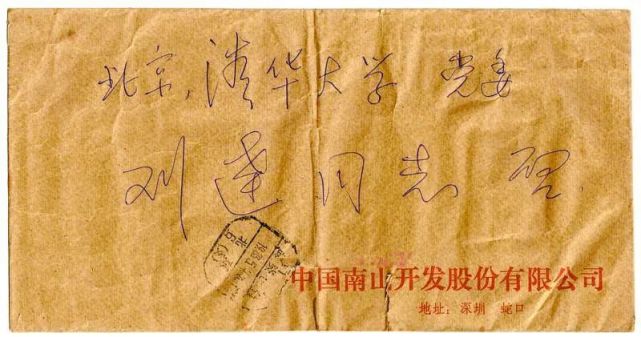 北京,清华大学 党委
刘达同志 启
中国南山开发股份有限公司
地址：深圳 蛇口